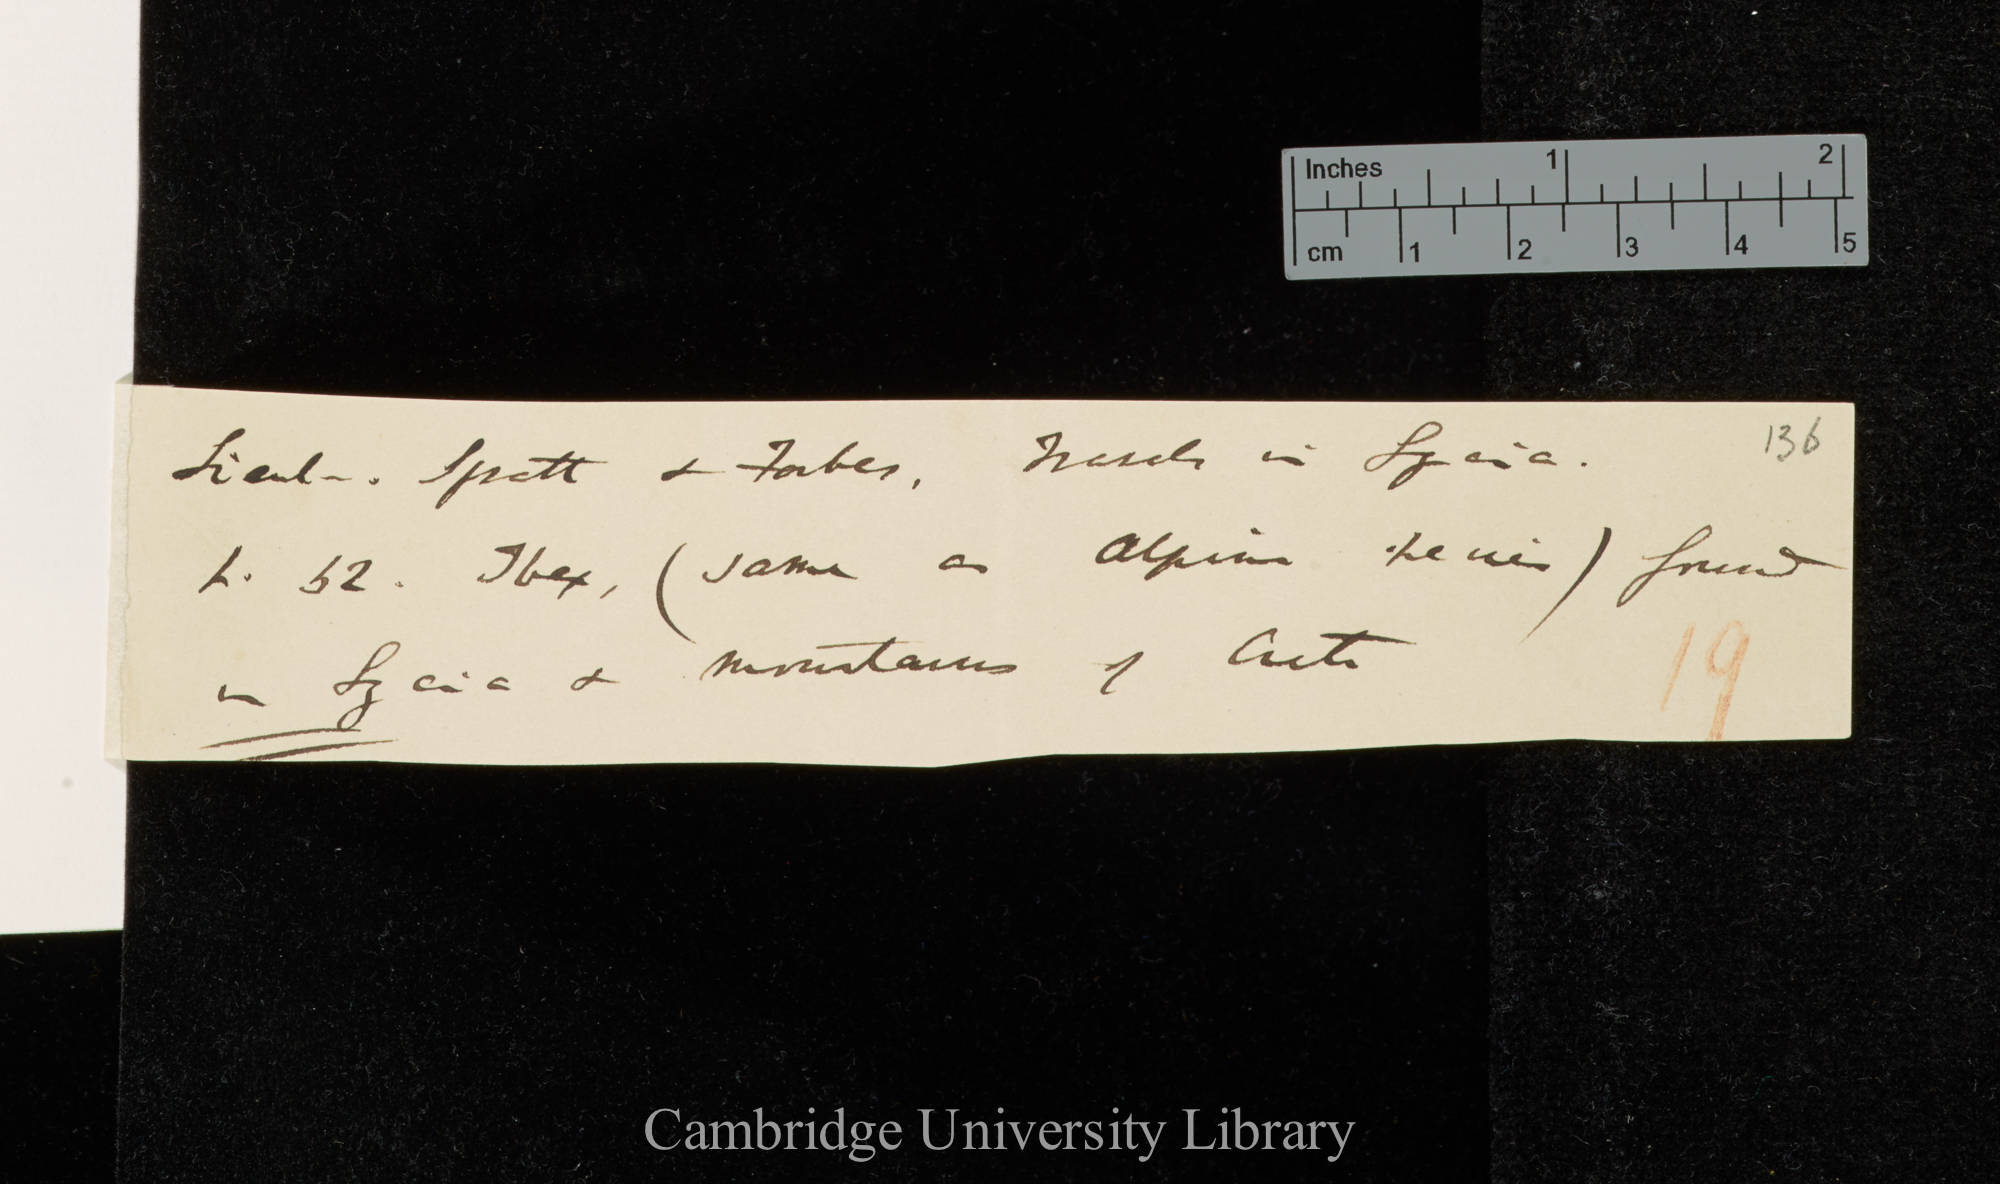 Inches 1 2
cm 1 2 3 4 5
136
Lieut. Spratt & Forbes, Travels in Lycia.
p. 62. Ibex, (same as Alpine species) found
in Lycia & mountains of Crete
19
Cambridge University Library